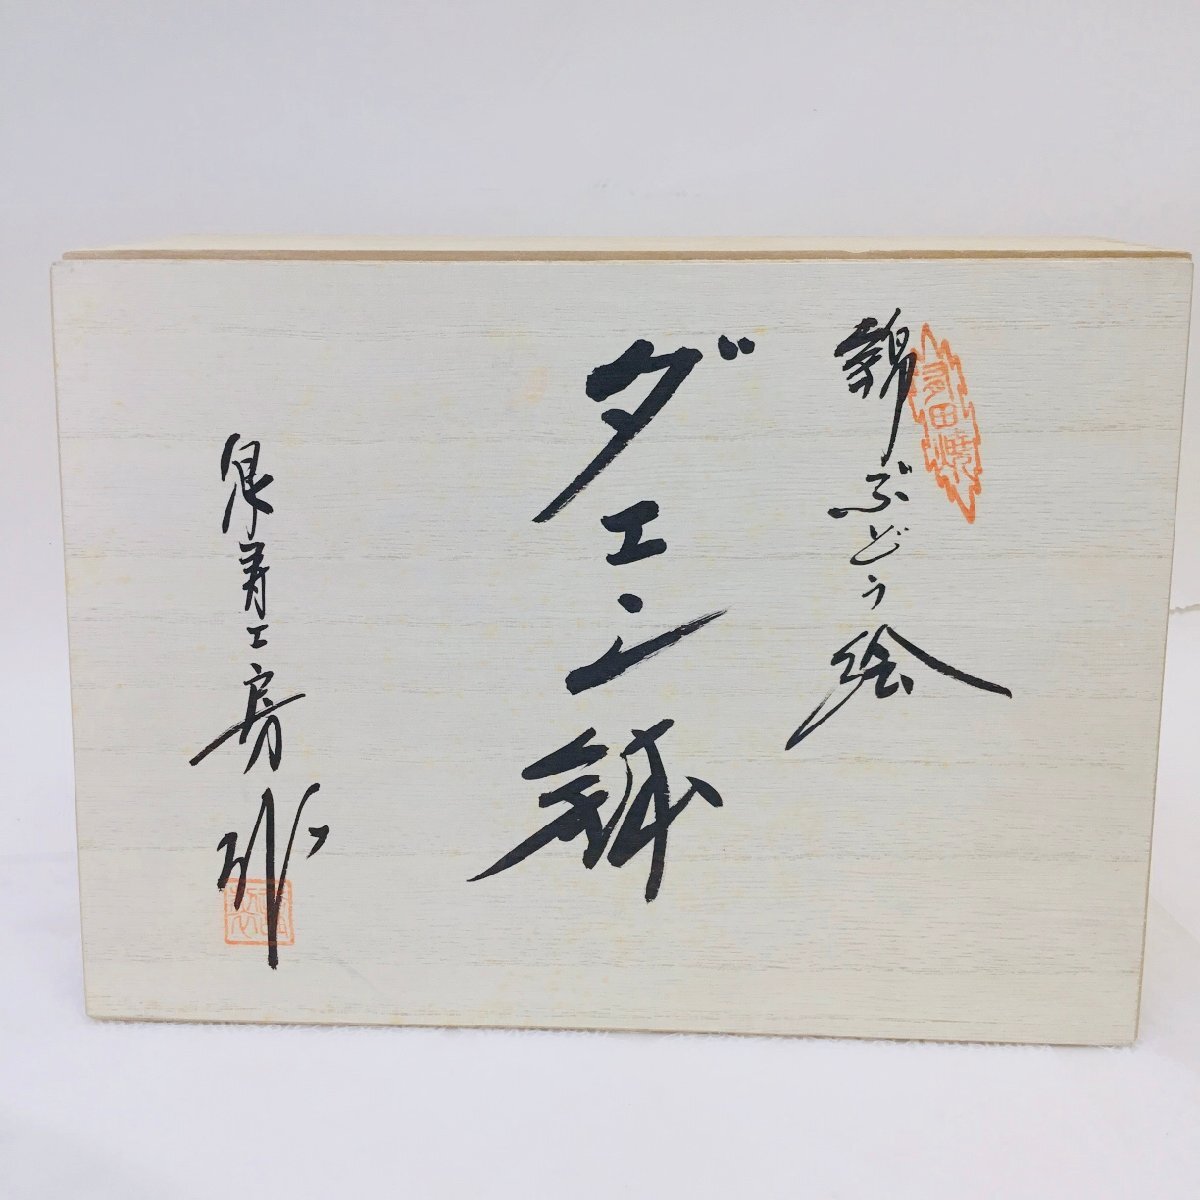 有田焼
錦ぶどう絵
ダエン鉢
泉寿工房作